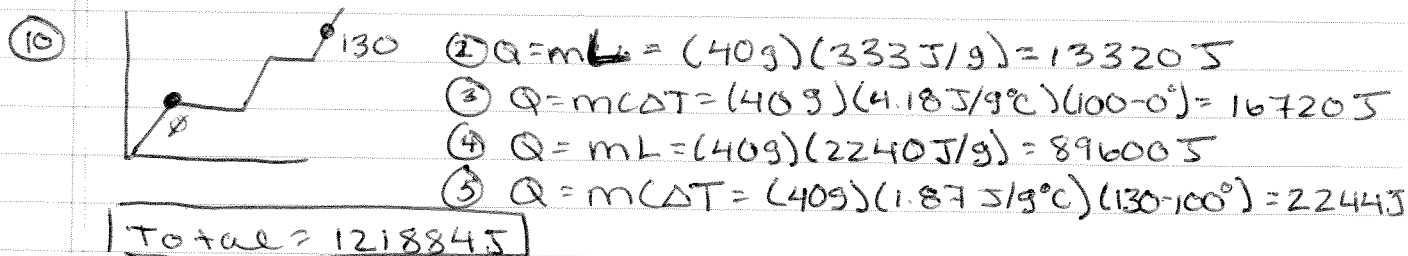 ⑩ 130 ② Q=mL = (40g)(333J/g)=13320J
0 ③ Q=mCΔT=(40g)(4.18J/g°C)(100-0°)= 16720J
④ Q= mL=(40g)(2240J/g)= 89600J
⑤ Q=mCΔT= (40g)(1.87J/g°C)(130-100°)=2244J
Total= 121884J